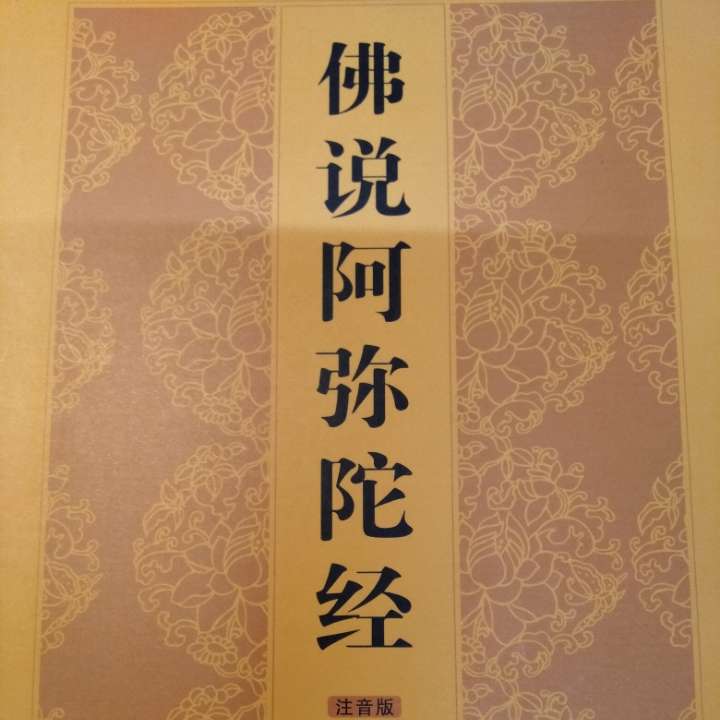 佛说阿弥陀经
注音版